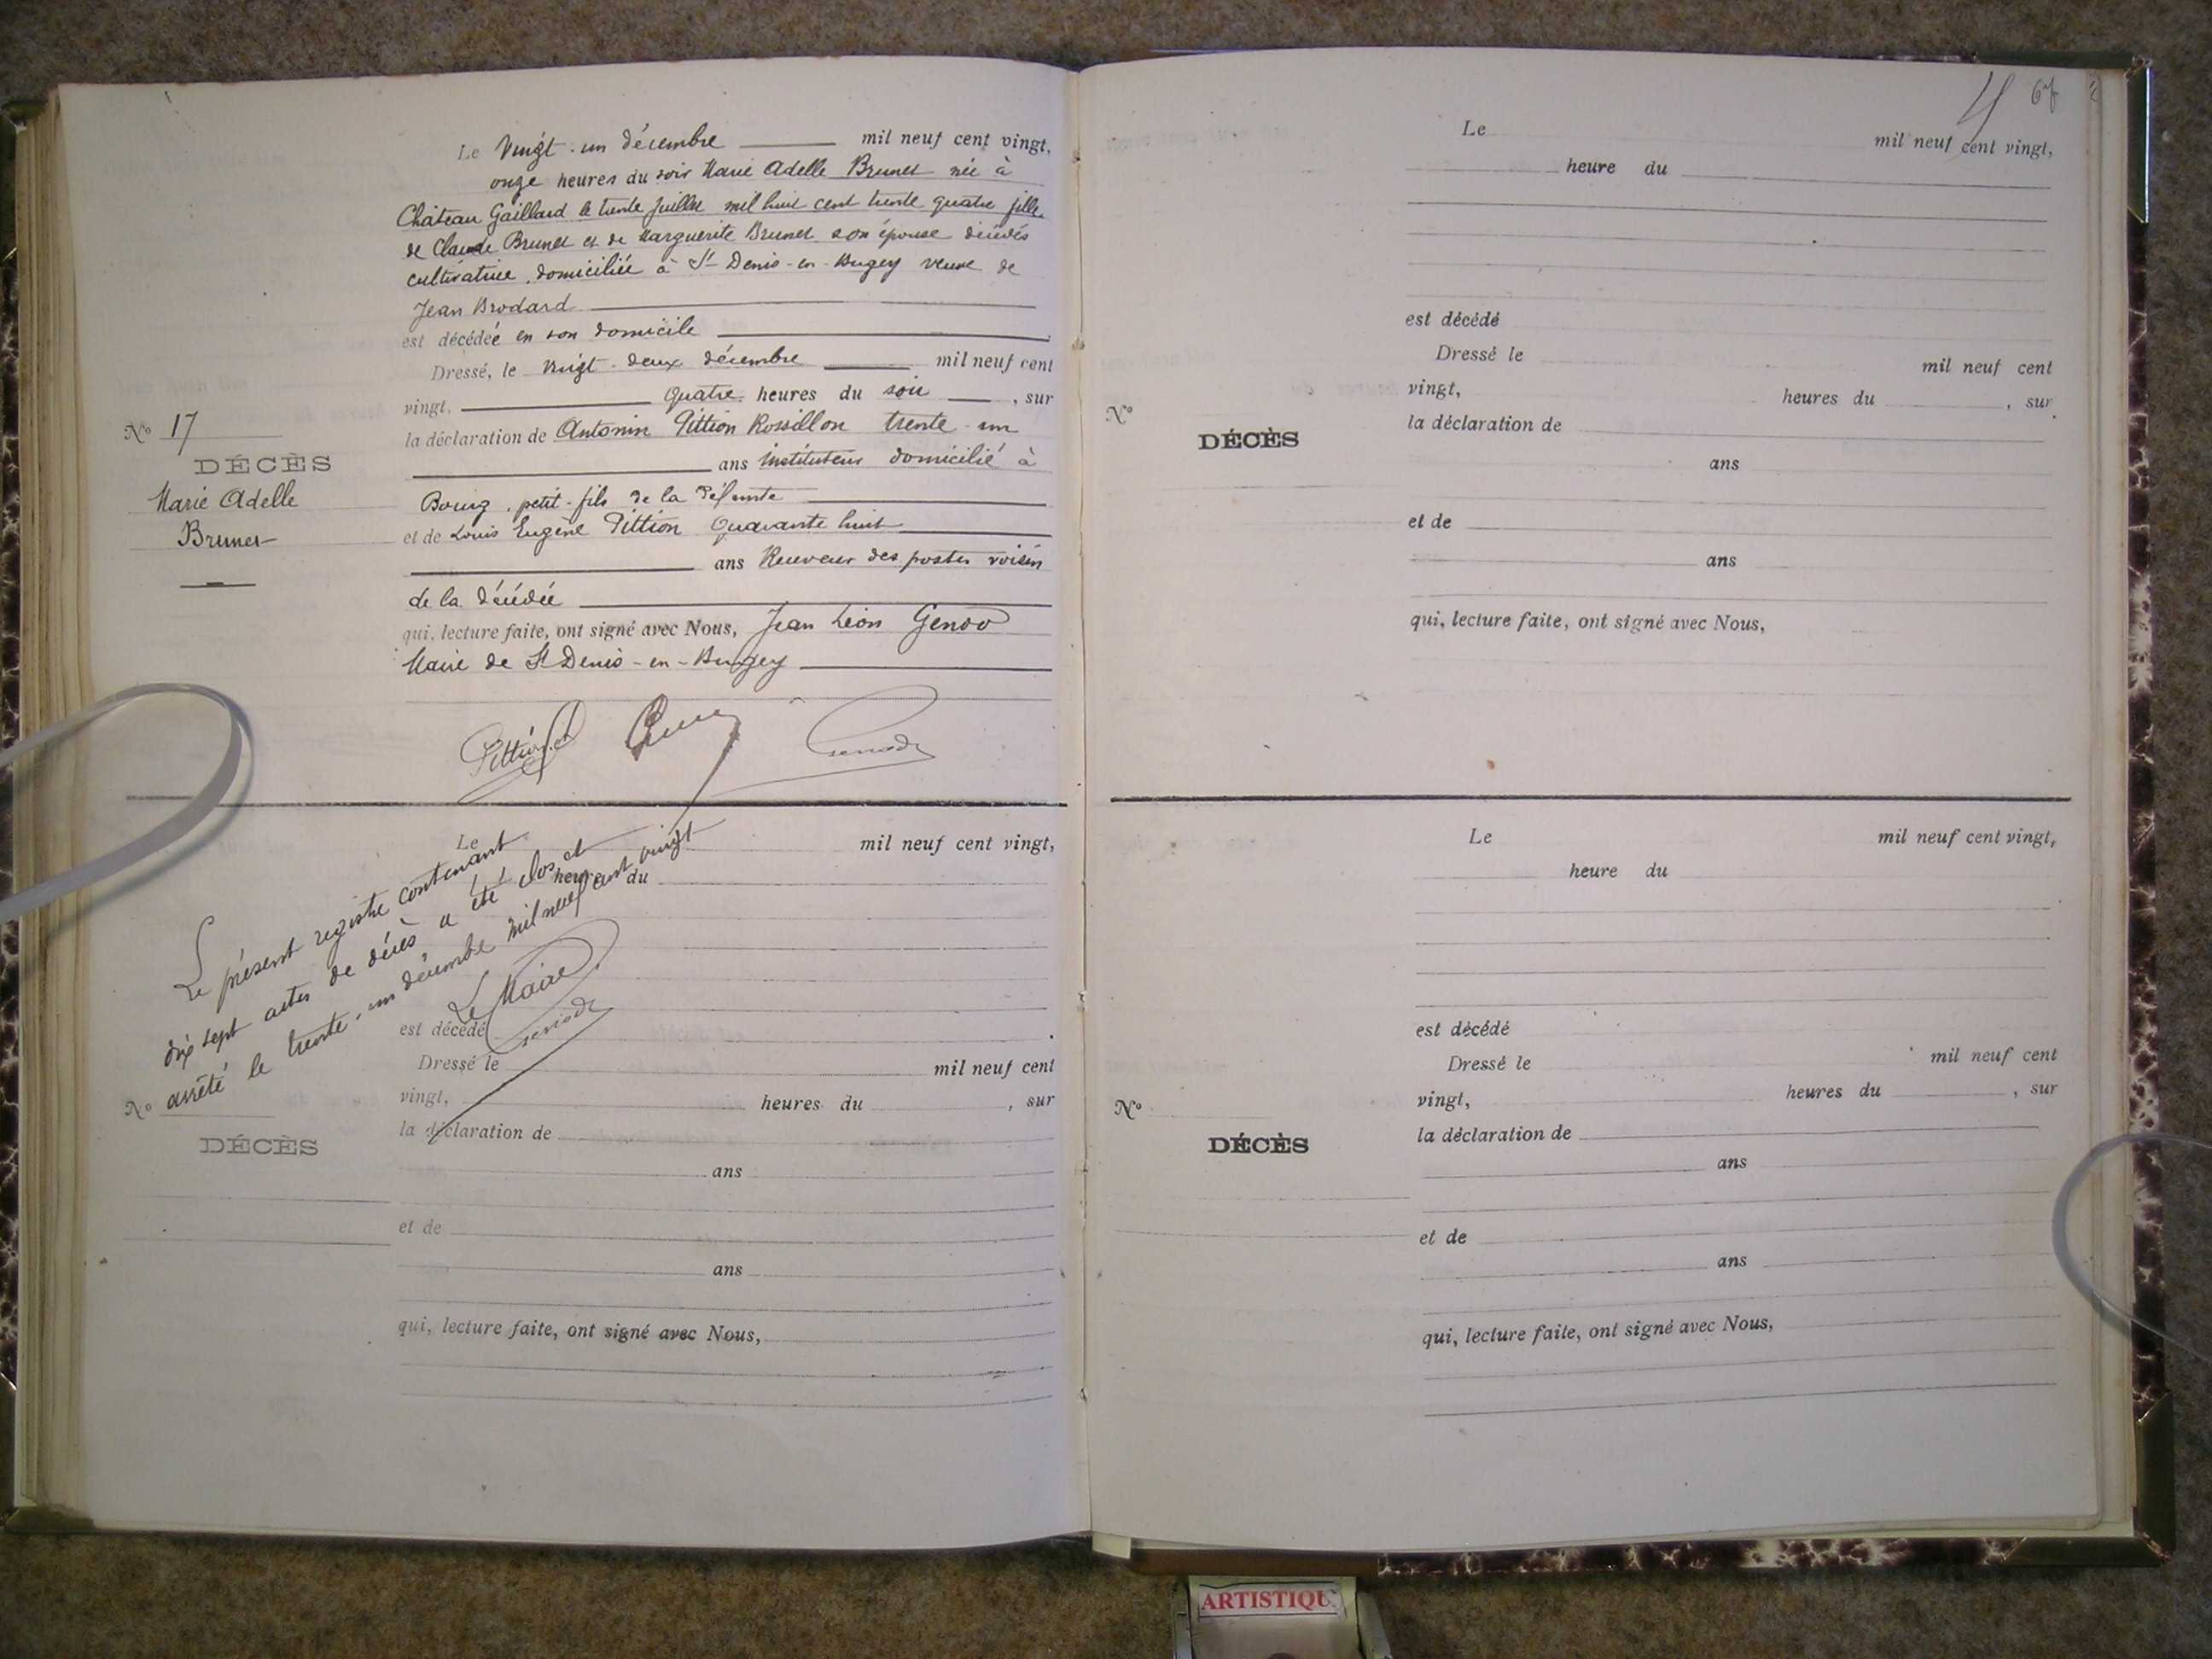 Le Vingt-un décembre mil neuf cent vingt,
onze heures du soir Marie Adelle Brunet née à
Château Gaillard le trente Juillet mil huit cent trente quatre fille
de Claude Brunet et de Marguerite Brunet son épouse décédés
cultivatrice, domiciliée à St Denis-en-Bugey veuve de
Jean Brodard
est décédée en son domicile
Dressé, le vingt-deux décembre mil neuf cent
vingt, quatre heures du soir, sur
la déclaration de Antonin Pittion Rossillon trente-un
ans instituteur domicilié à
Bourg, petit-fils de la défunte
et de Louis Eugène Pittion quarante huit
ans Receveur des postes voisin
de la décédée
qui, lecture faite, ont signé avec Nous, Jean Léon Genod
Maire de St Denis-en-Bugey
Nº 17
DÉCÈS
Marie Adelle
Brunet
Genod
Le mil neuf cent vingt,
heure du
est décédé
Dressé le mil neuf cent
vingt, heures du , sur
la déclaration de
ans
et de
ans
qui, lecture faite, ont signé avec Nous,
Nº
DÉCÈS
Le présent registre contenant
dix sept actes de décès a été clos et
arrêté le trente-un décembre mil neuf cent vingt
Le Maire
Genod
67
Le mil neuf cent vingt,
heure du
est décédé
Dressé le mil neuf cent
vingt, heures du , sur
la déclaration de
ans
et de
ans
qui, lecture faite, ont signé avec Nous,
Nº
DÉCÈS
Le mil neuf cent vingt,
heure du
est décédé
Dressé le mil neuf cent
vingt, heures du , sur
la déclaration de
ans
et de
ans
qui, lecture faite, ont signé avec Nous,
Nº
DÉCÈS
ARTISTIQU